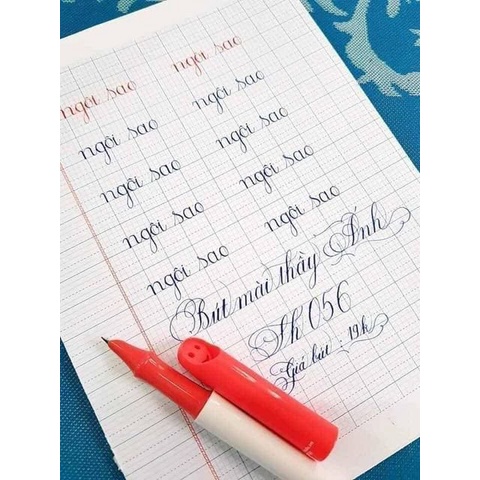 ngôi sao ngôi sao
ngôi sao ngôi sao
ngôi sao ngôi sao
ngôi sao ngôi sao
ngôi sao ngôi sao
Bút mài thầy Ánh
Sh 056
Giá bút : 19k